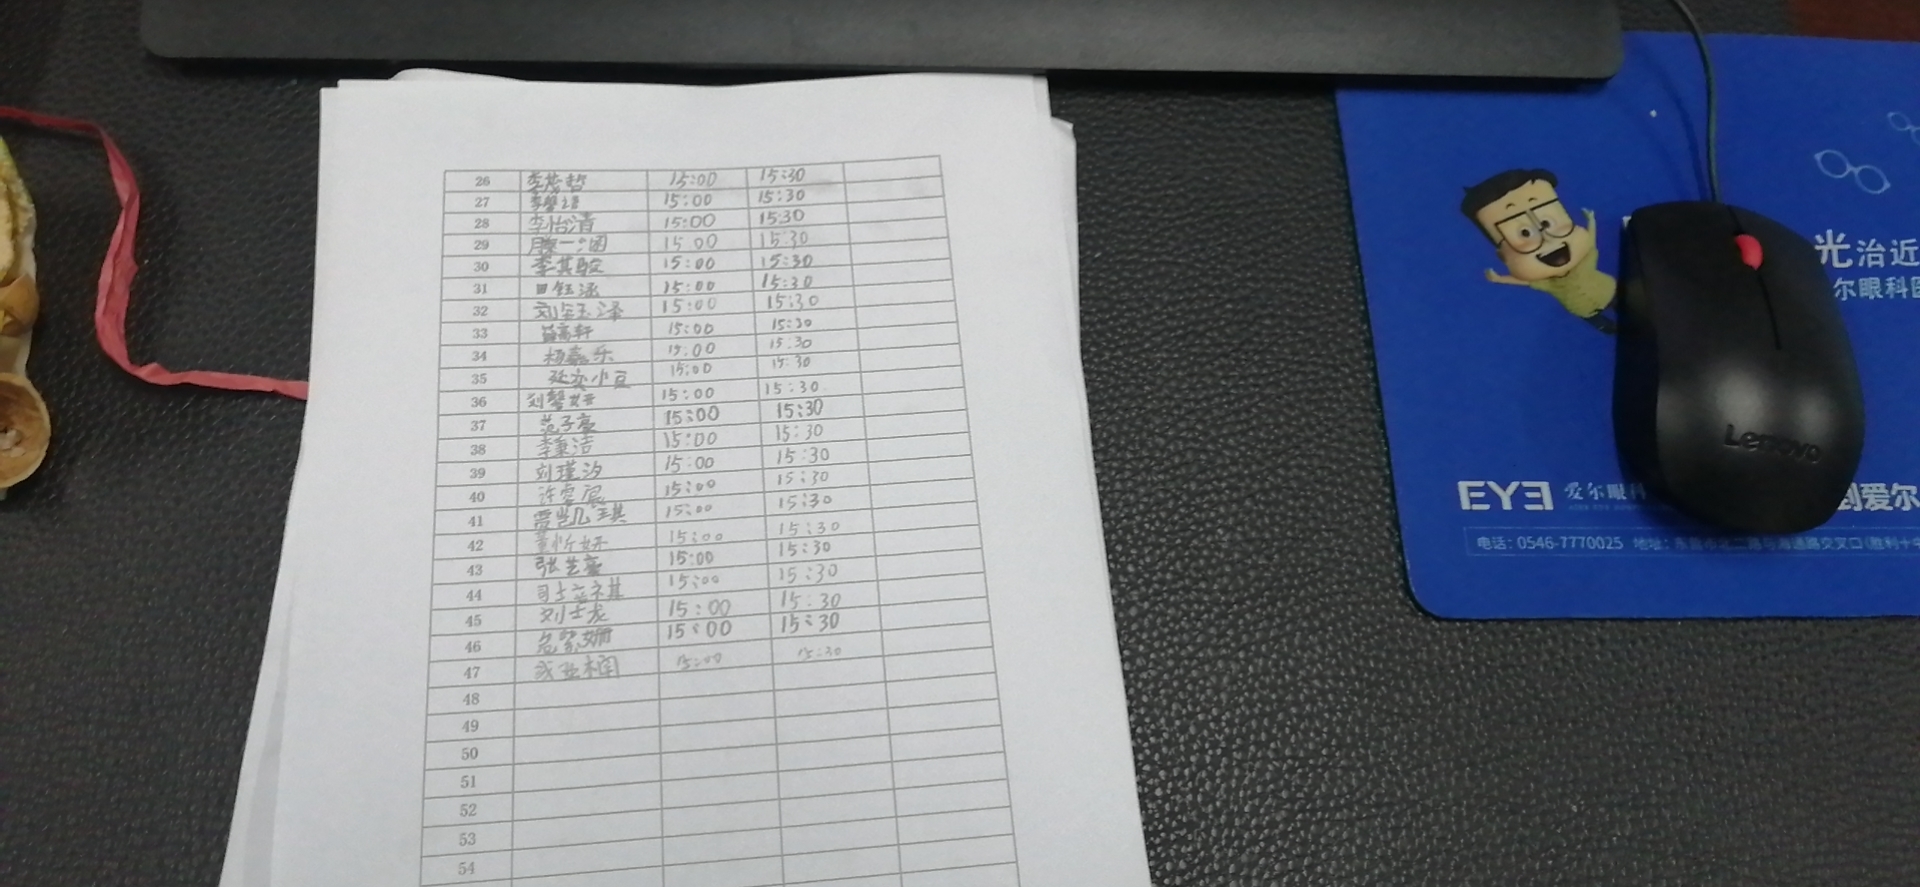 26 李茂哲 15:00 15:30
27 李馨语 15:00 15:30
28 李怡清 15:00 15:30
29 滕一 15:00 15:30
30 李其骏 15:00 15:30
31 田钰涵 15:00 15:30
32 刘玉泽 15:00 15:30
33 苗高轩 15:00 15:30
34 杨嘉乐 15:00 15:30
35 小豆 15:00 15:30
36 刘馨妍 15:00 15:30
37 范子豪 15:00 15:30
38 李秉洁 15:00 15:30
39 刘瑾汐 15:00 15:30
40 许宸 15:00 15:30
41 贾凯琪 15:00 15:30
42 董忻妍 15:00 15:30
43 张艺豪 15:00 15:30
44 15:00 15:30
45 刘士龙 15:00 15:30
46 紫姗 15:00 15:30
47 15:00 15:30
48
49
50
51
52
53
54
光治近
尔眼科医
EYE 爱尔眼科 到爱尔
电话: 0546-7770025 地址: 东营市北二路与海通路交叉口(胜利十
Lenovo